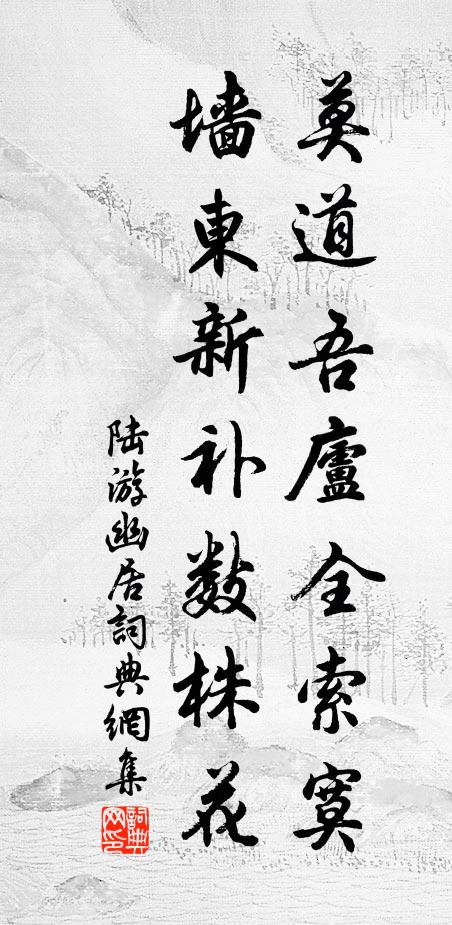 莫道吾廬全索寞
墙東新补数株花
陆游幽居詞典網集
詞典
网印